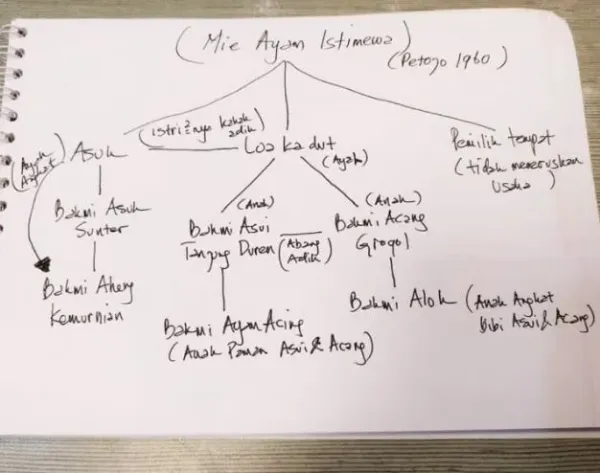 (Mie Ayam Istimewa)
(Petojo 1960)
(istri²nya kakak
adik)
(Ayah
Angkat)
Asuk
Loa ka dut
(Ayah)
Pemilik tempat
(tidak meneruskan
usaha)
Bakmi Asuk
Sunter
(Anak)
Bakmi Asui
Tanjung Duren
(Abang
Adik)
(Anak)
Bakmi Acang
Grogol
Bakmi Aheng
Kemurnian
Bakmi Ayam Acing
(Anak Paman Asui & Acang)
Bakmi Alok
(Anak Angkat
bibi Asui & Acang)